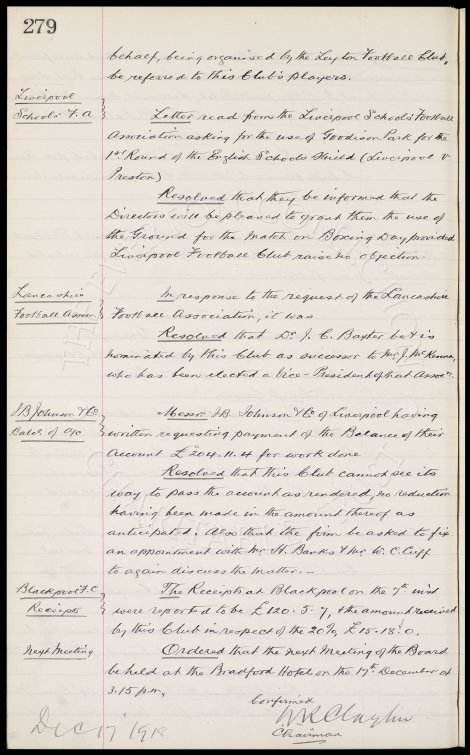 279
behalf, being organised by the Leyton Football Club,
be referred to this Club's players.
Liverpool
Schools' F. A
Letter read from the Liverpool Schools Football
Association asking for the use of Goodison Park for the
1st Round of the English Schools Shield (Liverpool v
Preston)
Resolved that they be informed that the
Directors will be pleased to grant them the use of
the Ground for the match on Boxing Day provided
Liverpool Football Club raise no objection.
Lancashire
Football Assocn
In response to the request of the Lancashire
Football Association, it was
Resolved that Dr. J. C. Baxter be & is
nominated by this Club as successor to Mr. J. McKenna,
who has been elected a Vice-President of that Assocn.
JB Johnson & Co
Balce of a/c
Messrs JB Johnson & Co of Liverpool having
written requesting payment of the Balance of their
Account £204.11.4 for work done
Resolved that this Club cannot see its
way to pass the account as rendered, no reduction
having been made in the amount thereof as
anticipated; Also that the firm be asked to fix
an appointment with Mr H. Banks & Mr W. C. Cuff
to again discuss the matter.—
Blackpool F.C.
Receipts
The Receipts at Blackpool on the 7th inst
were reported to be £120.5.7, & the amount received
by this Club in respect of the 20% £15.18.0.
Next Meeting
Ordered that the next Meeting of the Board
be held at the Bradford Hotel on the 17th December at
3.15 p.m.
Confirmed
W R Clayton
Chairman
Dec 17 1918